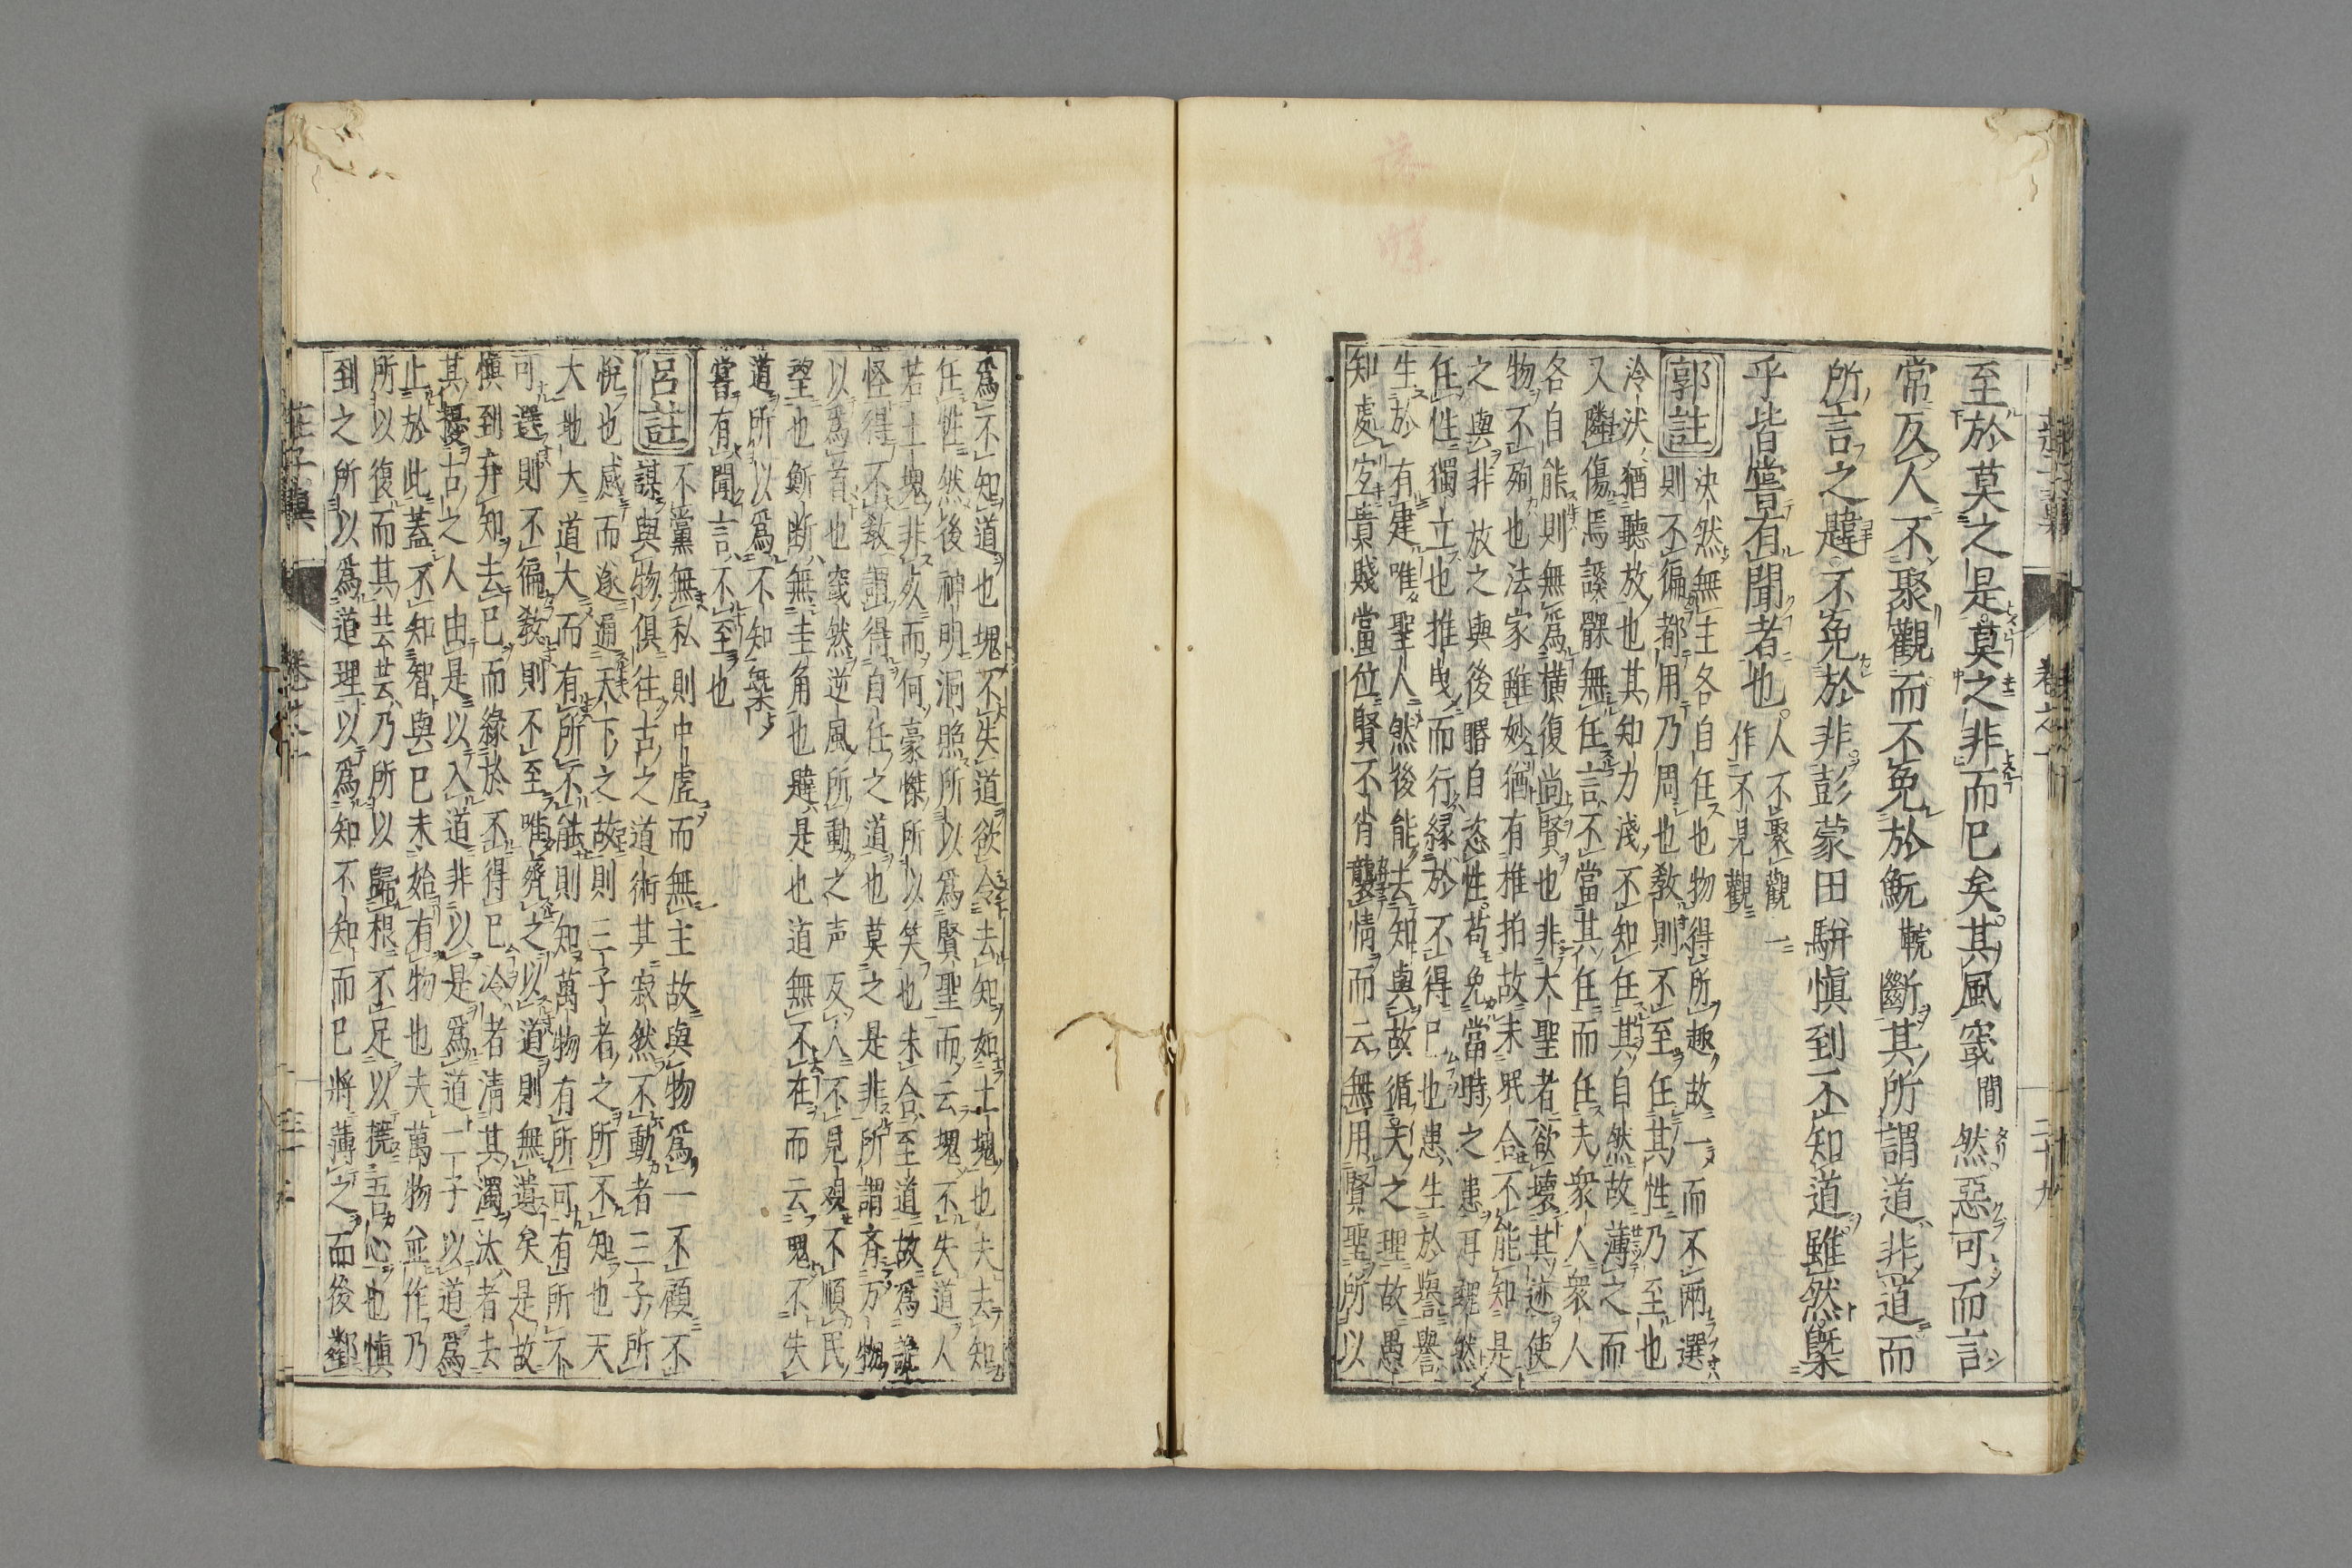 至於莫之是莫之非而已矣其風窢間然惡可而言
常反人不聚觀而不免於魭輐斷其所謂道非道而
所言之韙不免於非彭蒙田駢慎到不知道雖然槩
乎皆嘗有聞者也人不聚觀一
作不見觀
郭註
決然無主各自任也物得所趣故一而不兩選
則不徧都用乃周也教則不至任其性乃至也
泠汰猶聽放也其知力淺不知任其自然故薄之而
又隣傷焉謑髁無任言不當其任而任夫衆人衆人
各自能則無爲横復尚賢也非大聖者欲壞其迹使
物不殉也法家雖妙猶有椎拍故未泯合不能知是
之與非放之與後睹自恣性苟免當時之患耳魏然
任性獨立也推曳而行緣於不得已也患生於譽譽
生於有建唯聖人然後能去知與故循天之理故愚
知處宜貴賤當位賢不肖襲情而云無用賢聖所以
爲不知道也塊不失道欲令去知如土塊也夫去知
任性然後神明洞照所以爲賢聖而云塊不失道人
若土塊非死而何豪傑所以笑也未合至道故爲詭
怪得不教謂得自任之道也莫之是非所謂斉万物
以爲首也窢然逆風所動之声反人不見觀不順民
望也鯫断無圭角也韙是也道無不在而云塊不失
道所以爲不知槩
嘗有聞言不至也
呂註
不黨無私則中虚而無主故與物爲一不顧不
謀與物俱往古之道術其寂然不動者三子所
悅也感而遂通天下之故則三子者之所不知也天
大地大道大而有所不能則知萬物有所可有所不
可選則不徧教則不至唯齊之以道則無遺矣是故
慎到弃知去已而緣於不得已泠者清其濁汰者去
其擾古之人由是以入道非以是爲道二子以道爲
止於此蓋不知智與已未始有物也夫萬物並作乃
所以復而其芸芸乃所以歸根不足以撓吾心也慎
到之所以爲道理以爲知不知而已將薄之而後鄰